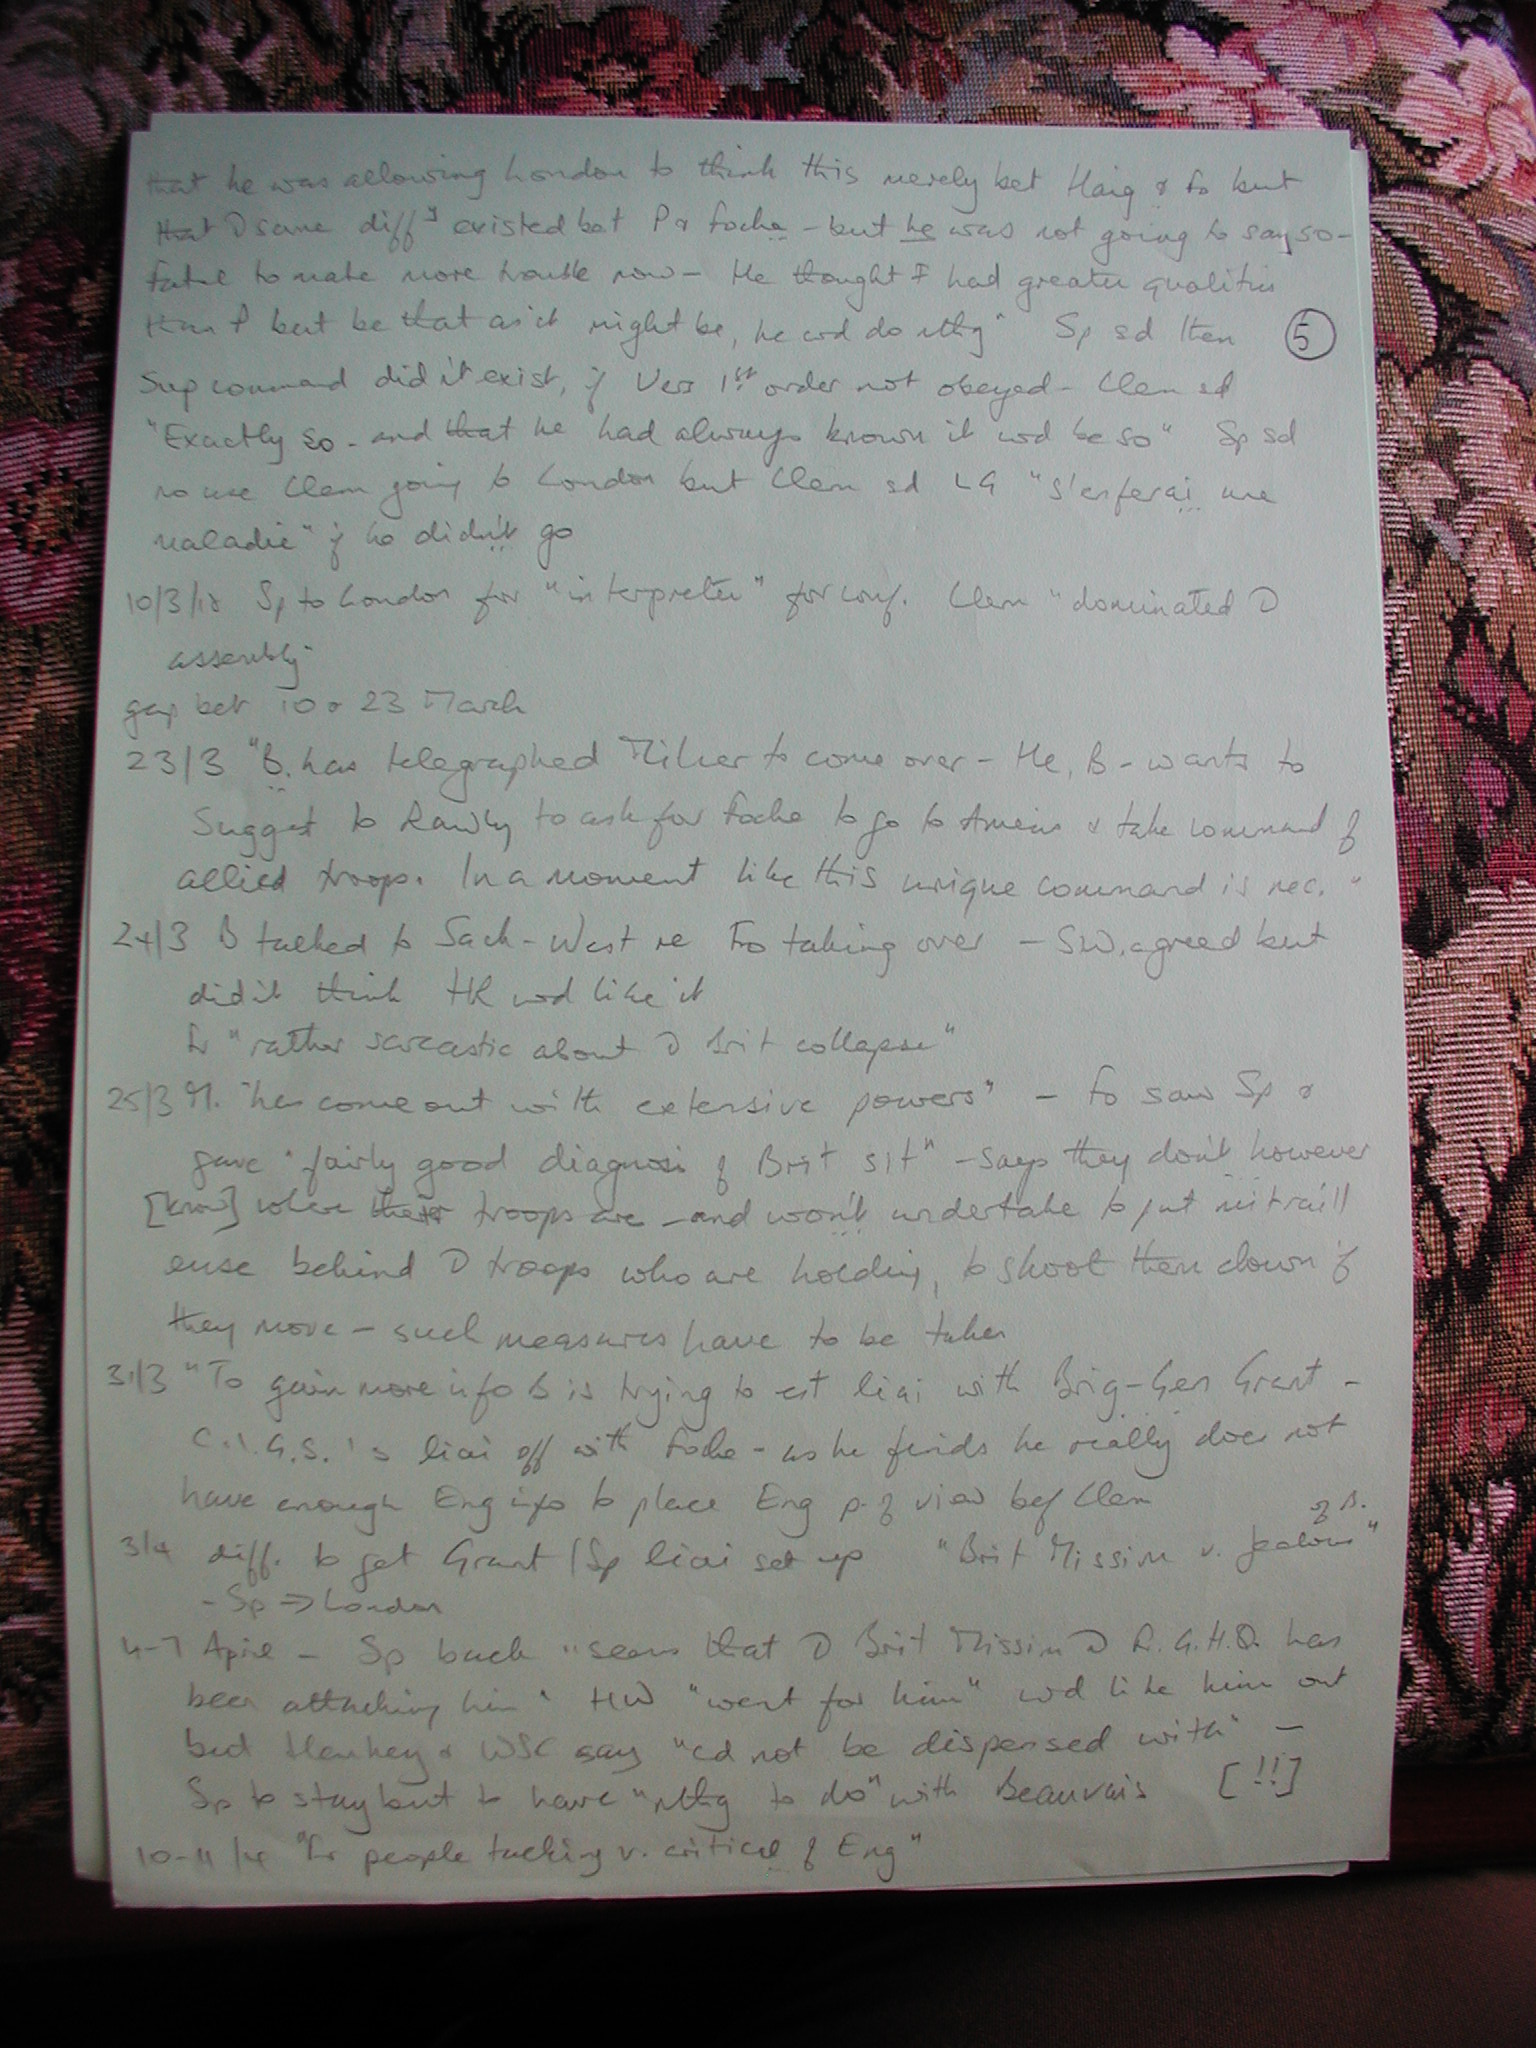 that he was allowing London to think this merely bet Haig & Fo but
that D same diffy existed bet P & Foche - but he was not going to say so -
fatal to make more trouble now - He thought F had greater qualities
than P but be that as it might be, he wd do nthg" Sp sd then
5
Sup command did it exist, if Vers 1st order not obeyed - Clem sd
"Exactly so - and that he had always known it wd be so" Sp sd
no use Clem going to London but Clem sd LG "s'en ferai une
maladie" if he didn't go
10/3/18 Sp to London for "interpreter" for conf. Clem "dominated D
assembly"
gap bet 10 & 23 March
23/3 "B. has telegraphed Milner to come over - He, B - wants to
suggest to Rawly to ask for Foche to go to Amiens & take command of
allied troops. In a moment like this unique command is nec."
24/3 B talked to Sack-West re Fo taking over - S.W. agreed but
didn't think HR wd like it
Fr "rather sarcastic about D Brit collapse"
25/3 M. "has come out with extensive powers" - Fo saw Sp &
gave "fairly good diagnosis of Brit sit" - says they don't however
[know] where their troops are - and won't undertake to put mitraill
euse behind D troops who are holding, to shoot them down if
they move - such measures have to be taken
31/3 "To gain more info B is trying to est liai with Brig-Gen Grant -
C.I.G.S.'s liai off with Foche - as he finds he really does not
have enough Eng info to place Eng p. of view bef Clem
3/4 diff. to get Grant / Sp liai set up "Brit Mission v. jealous of B."
- Sp ⇒ London
4-7 April - Sp back "seems that D Brit Mission D R.G.H.Q. has
been attacking him" HW "went for him" wd like him out
but Hankey & WSC say "cd not be dispensed with" -
Sp to stay but to have "nthg to do" with Beauvais [!!]
10-11/4 "Fr people talking v. critical of Eng"